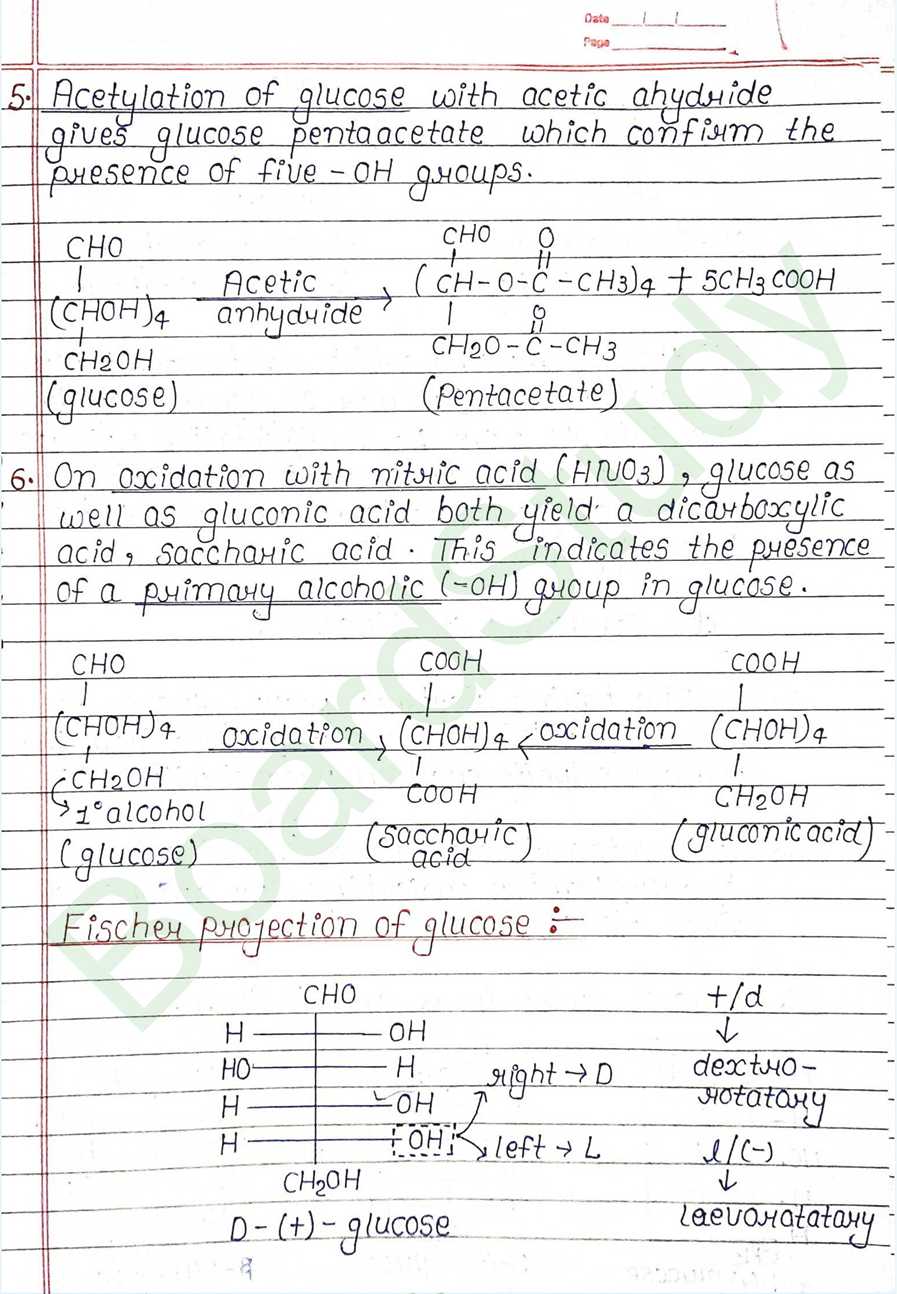 Date / /
Page
5. Acetylation of glucose with acetic ahydride
gives glucose pentaacetate which confirm the
presence of five -OH groups.
CHO
|
(CHOH)4
|
CH2OH
(glucose)
Acetic
anhydride
CHO O
| ||
(CH-O-C-CH3)4 + 5CH3COOH
| O
||
CH2O-C-CH3
(Pentacetate)
6. On oxidation with nitric acid (HNO3), glucose as
well as gluconic acid both yield a dicarboxylic
acid, saccharic acid. This indicates the presence
of a primary alcoholic (-OH) group in glucose.
CHO COOH COOH
| | |
(CHOH)4 oxidation → (CHOH)4 ← oxidation (CHOH)4
| | |
CH2OH COOH CH2OH
→ 1° alcohol
(glucose) (saccharic acid) (gluconic acid)
Fischer projection of glucose :-
CHO
H OH
HO H
H OH
H OH
CH2OH
D-(+)-glucose
right → D
left → L
+/d
↓
dextro-
rotatary
l/(-)
↓
laevorotatary
BoardStudy